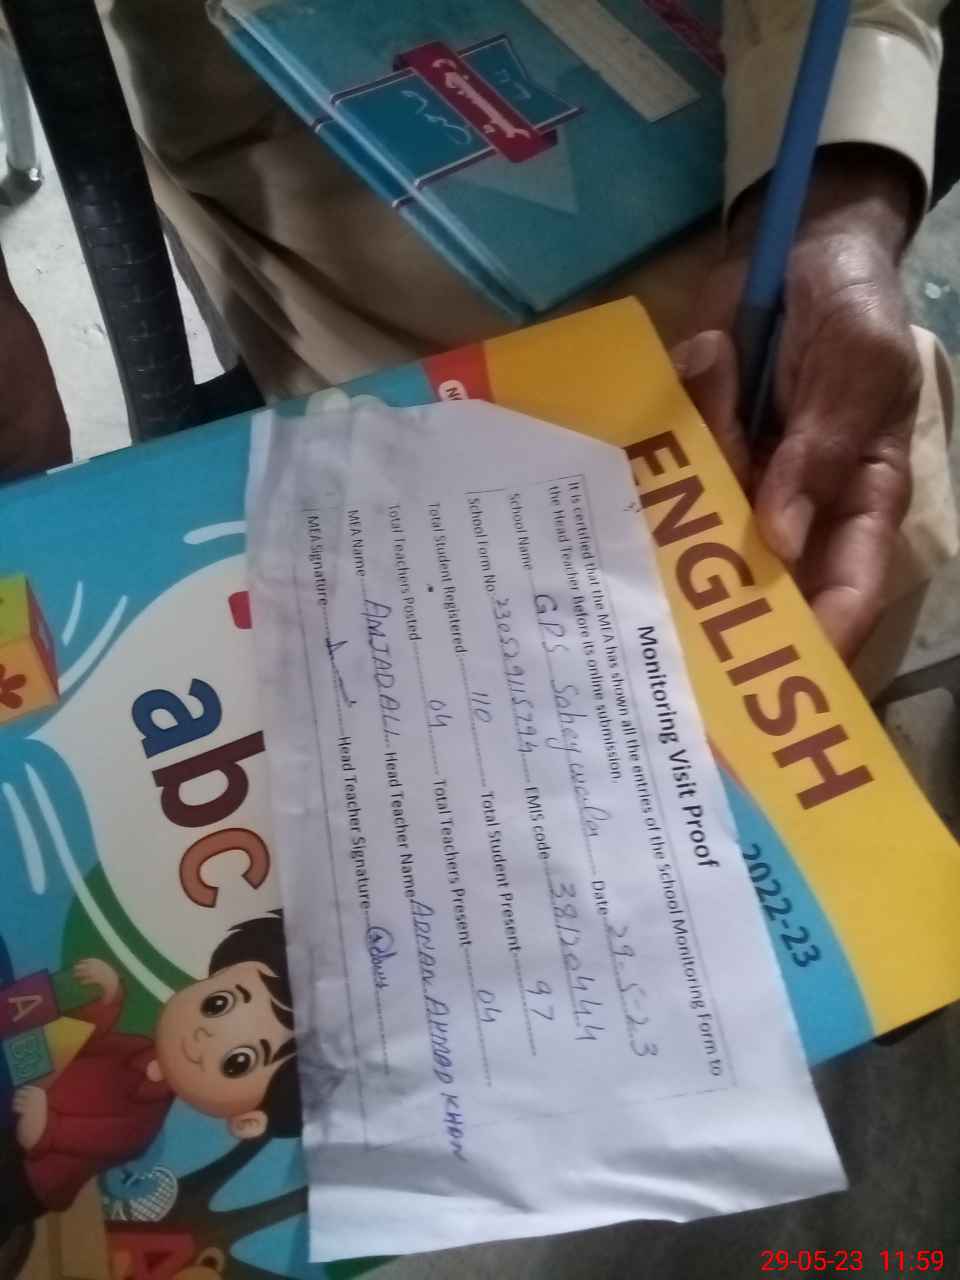 ENGLISH
2022-23
Monitoring Visit Proof
It is certified that the MEA has shown all the entries of the School Monitoring Form to
the Head Teacher Before its online submission.
School Name GPS Date 29-5-23
School Form No. 230529115294 EMIS code 38120444
Total Student Registered 110 Total Student Present 97
Total Teachers Posted 04 Total Teachers Present 04
MEA Name AMJAD ALI Head Teacher Name ADNAN AHMAD KHAN
MEA Signature Head Teacher Signature
abc
A
B
29-05-23 11:59